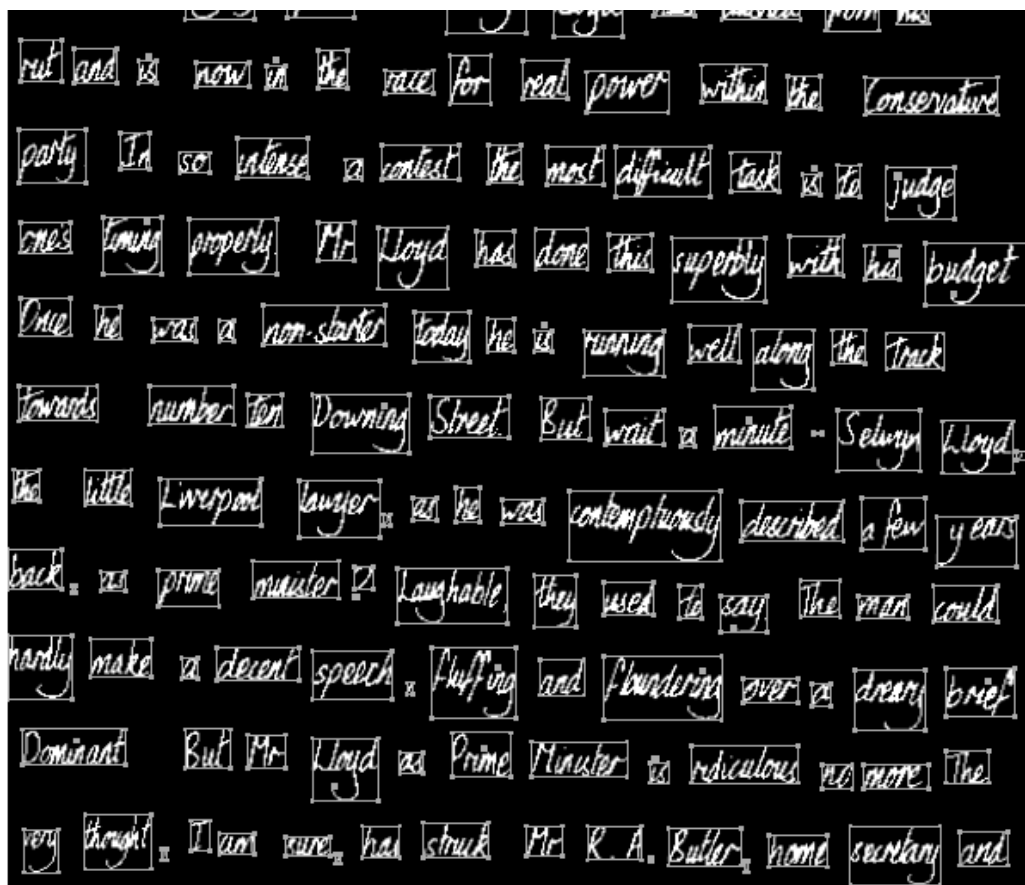 from his
rut and is now in the race for real power within the Conservative
party In so intense a contest the most difficult task is to judge
one's timing properly. Mr Lloyd has done this superbly with his budget
Once he was a non-starter today he is running well along the Track
towards number ten Downing Street. But wait a minute - Selwyn Lloyd,
the little Liverpool lawyer, as he was contemptuously described a few years
back, as prime minister ? Laughable, they used to say. The man could
hardly make a decent speech, fluffing and floundering over a dreary brief
Dominant But Mr Lloyd as Prime Minister is ridiculous no more The
very thought, I am sure, has struck Mr R. A. Butler, home secretary and